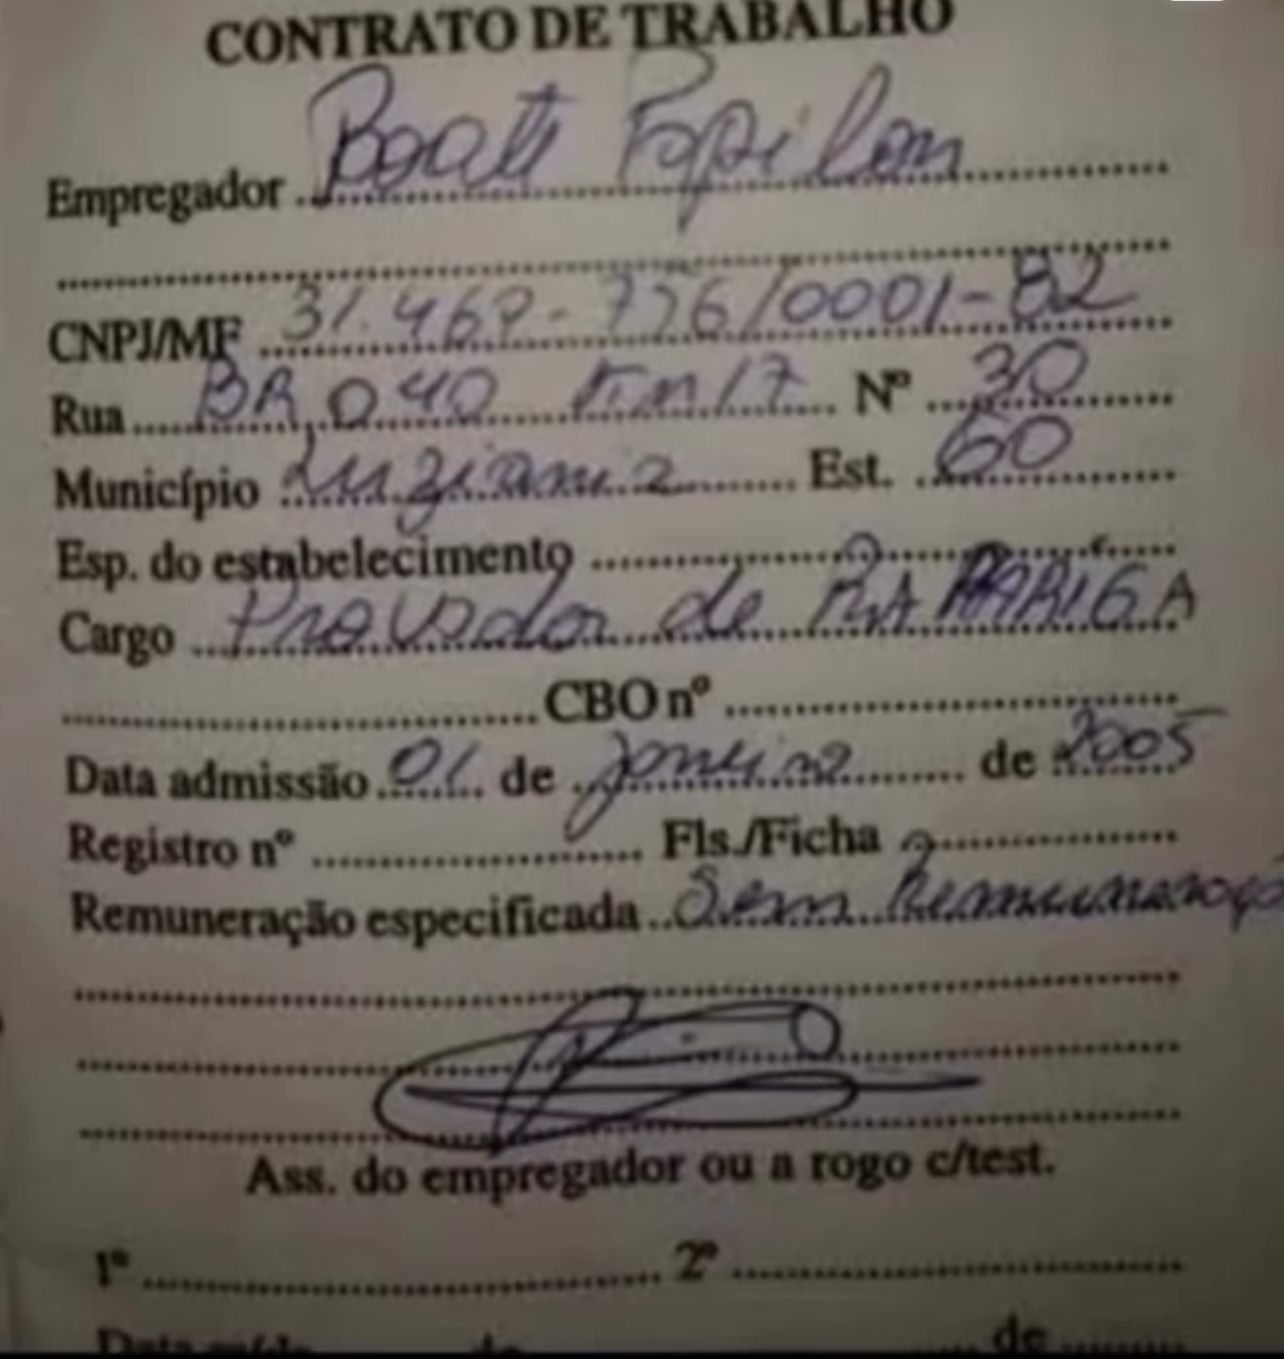 CONTRATO DE TRABALHO
Empregador Boate Papilon
CNPJ/MF 31.469-776/0001-82
Rua BR 040 Km 17 Nº 30
Município Luziania Est. GO
Esp. do estabelecimento
Cargo Provador de RAPARIGA
CBO nº
Data admissão 01 de Janeiro de 2005
Registro nº Fls./Ficha
Remuneração especificada Sem Remuneração
Ass. do empregador ou a rogo c/test.
1º 2º
Data saída de de